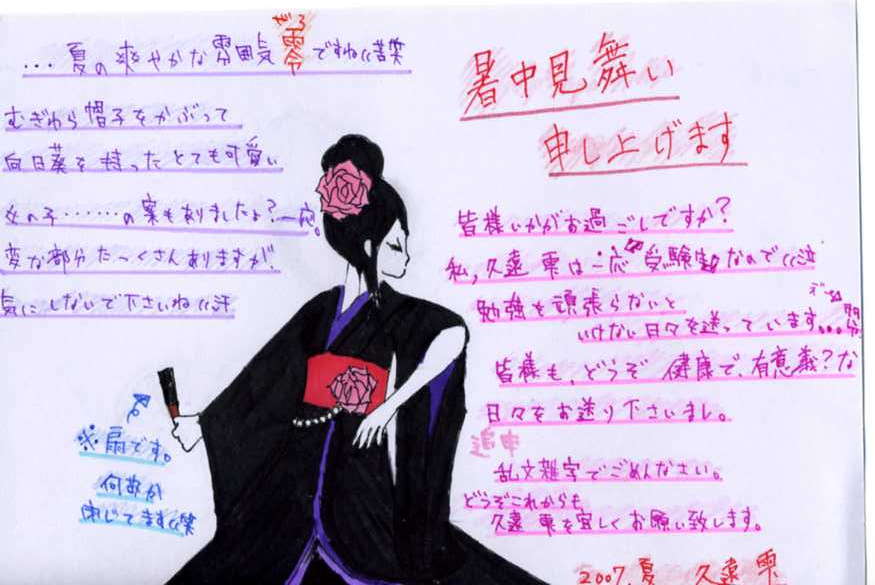 暑中見舞い
申し上げます
皆様いかがお過ごしですか?
私、久遠 雫は一応 受験生なので((泣
勉強を頑張らないと
いけない日々を送っています...
皆様も、どうぞ 健康で、有意義?な
日々をお送り下さいまし。
追申
乱文雑字でごめんなさい。
どうぞこれからも
久遠 雫を宜しくお願い致します。
2007.夏 久遠 雫
...夏の爽やかな雰囲気零ですね((苦笑
ぜろ
むぎわら帽子をかぶって
向日葵を持ったとても可愛い
女の子......の案もありましたよ?一応。
変な部分たっくさんありますが、
気にしないで下さいね((汗
※扇です。
何故か
閉じてます((笑